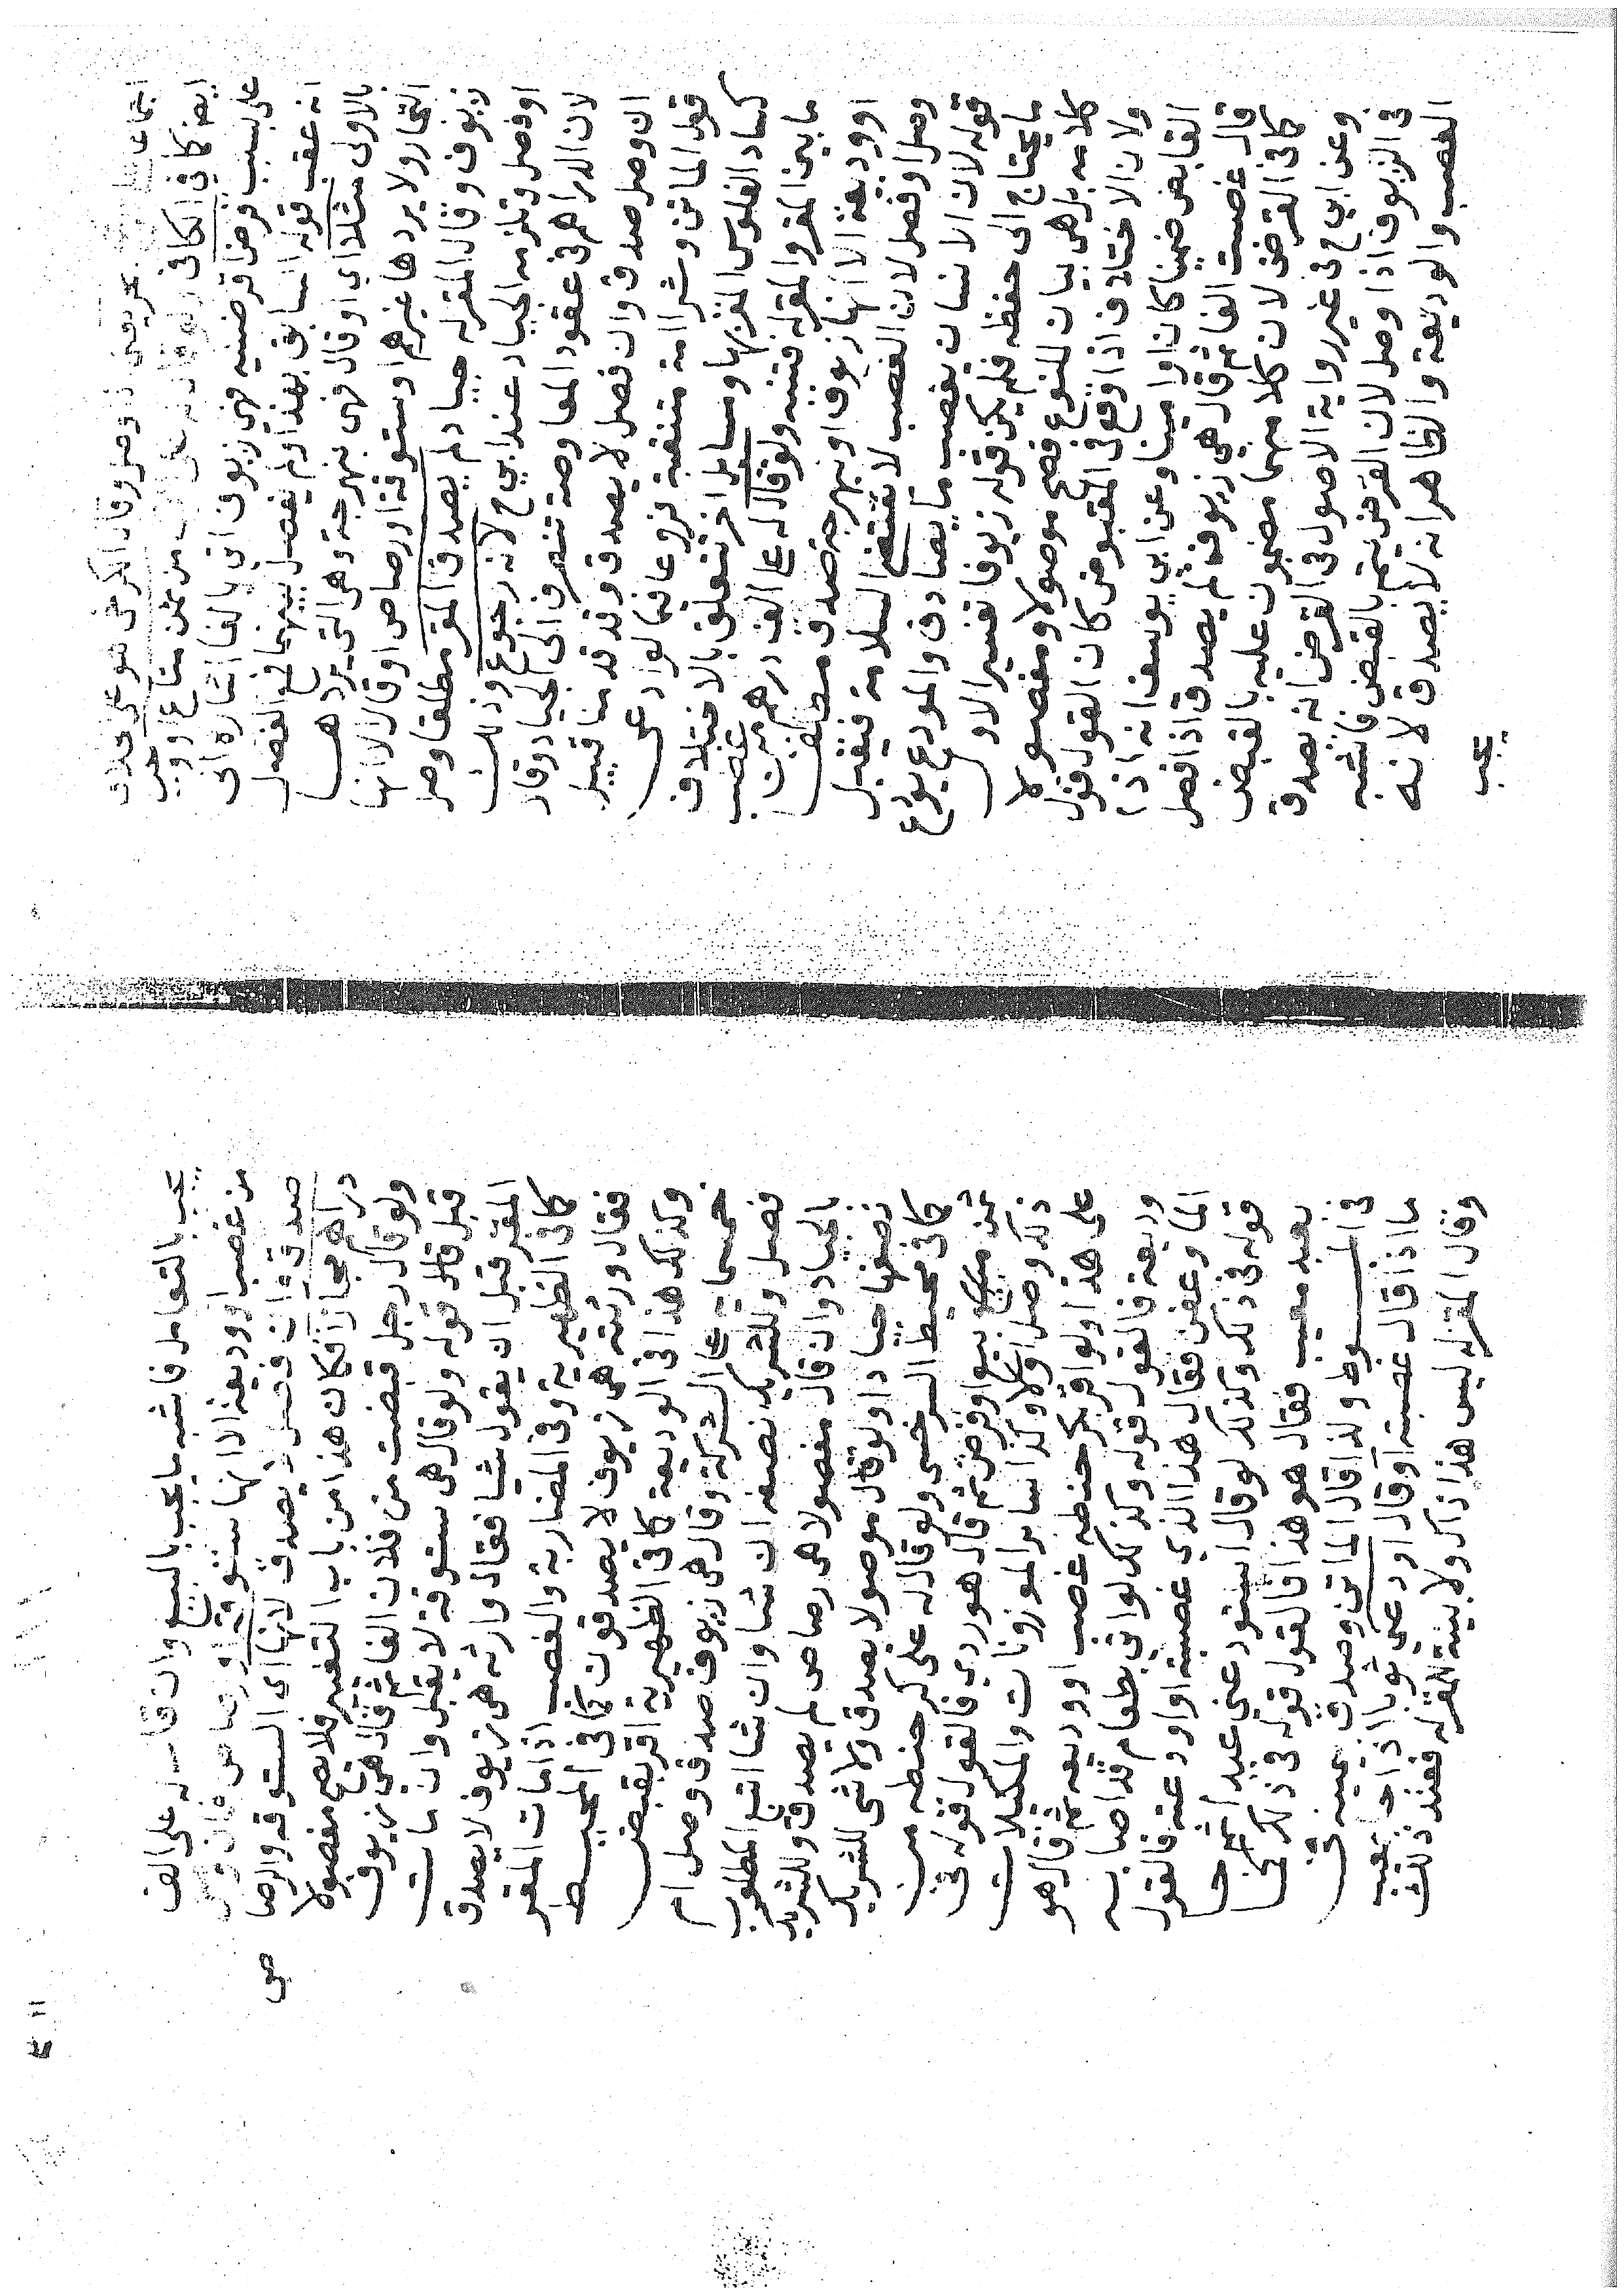 وصل وقال الكرخي هو على خلاف
ايضا كما في الكافي ولو قال له على من ثمن متاع او وجب
على بسبب قرض اقرضنيه وهي زيوف اتى بالفا اشارة الى
انه عقب قوله السابق بهذا ولم يفصل بينهما فمع الفصل
بالاولى مثلا اي او قال فهي بنهرجة وهي التي يردها
التجار ولا يردها غيرهم او ستوقة او رصاص او قال الا انها
زيوف وقال المقر له جياد لم يصدق المقر مطلقا وصل
او فصل وتلزمه الجياد عند ابي ح لانه رجوع وذلك
لان الدراهم في عقود المعاوضة تنصرف الى الجياد وقالا
ان وصل صدق وان فصل لا يصدق وقد قدمنا قبيل
قول الماتن وشرا امة متنقبة فروعا فيما لو ادعى
كساد الفلوس المقر بها ومسايل اخر تتعلق بالاختلاف
ما بين المقر والمقر له فتنبه ولو قال له على الف درهم من غصب
او وديعة الا انها زيوف او بنهرجة صدق مطلقا
وصل او فصل لان الغصب لا يقتضي السلامة فيقبل
قوله لان الانسان يغصب ما يصادف والمودع يودع
ما يحتاج الى حفظه فلم يكن قوله زيوفا تفسير الاول
كلامه بل هي بيان للنوع فصح موصولا ومفصولا
ولان الاختلاف اذا وقع في المقبوض كان القول قول
القابض ضمينا كان او امينا وعن ابي يوسف انه اذا
قال غصبت الفا ثم قال هي زيوف لم يصدق اذا فصل
كما في القرض لان كلا منهما مضمون عليه بالقبض
وعن ابي ح في غير رواية الاصول في القرض انه يصدق
في الزيوف اذا وصل لان القرض يتم بالقبض فاشبه
الغصب والوديعة والظاهر انه لا يصدق لانه
يجب
يجب بالتعامل فاشبه ما يجب بالبيع وان قال له على الف
من غصب او وديعة الا انها ستوقة او رصاص فان وصل
صدق وان فصل لا يصدق لانها اي الستوقة والرصا
ص
دراهم مجازا فكان هذا من باب التغيير فلا يصح مفصولا
ولو قال رجل قبضت من فلان الفا ثم قال هي زيوف
قبل قال قوله ولو قال هي ستوقة لا يقبل وان مات
المقر قبل ان يقول شيا فقال وارثه هي زيوف لا يصدق
كما في الظهيرية وفي المضاربة والغصب اذا مات المقر
فقال ورثته هي زيوف لا يصدقون كما في المحيط
وكذلك هذا في الوديعة كما في الظهيرية اقر بقبض
خمسماية على الشركة وقال هي زيوف صدق وصل ام
فصل وللشريك نصفه ان شا وان شا اتبع المطلوب
بالجياد وان قال مفصولا هي رصاص لم يصدق وللشريك
نصفها جيادا ولو قال موصولا يصدق ولا شي للشريك
كما في محيط السرخسي ولو قال له علي كر حنطة من
ثمن مبيع بيع او قرض ثم قال هو ردي فالقول قوله في
ذلك وصل او لا وكذا ساير الموزونات والمكيلات
على هذا ولو اقر بكر حنطة غصب او وديعة ثم قال هو
وديعة فالقول قوله وكذلك لو اتى بطعام قد اصابه
الما وعفن فقال هذا الذي غصبته او اودعته فالقول
قوله في ذلك وكذلك لو قال استودعني عبدا ثم جا
بعبد معيب فقال هو هذا فالقول قوله في ذلك كما
في المبسوط ولذا قال الماتن وصدق بيمينه في
ما اذا قال غصبته او قال اودعني ثوبا اذا جا بعيب
وقال المقر له ليس هذا ذاك ولا بينة للمقر له فعند ذلك